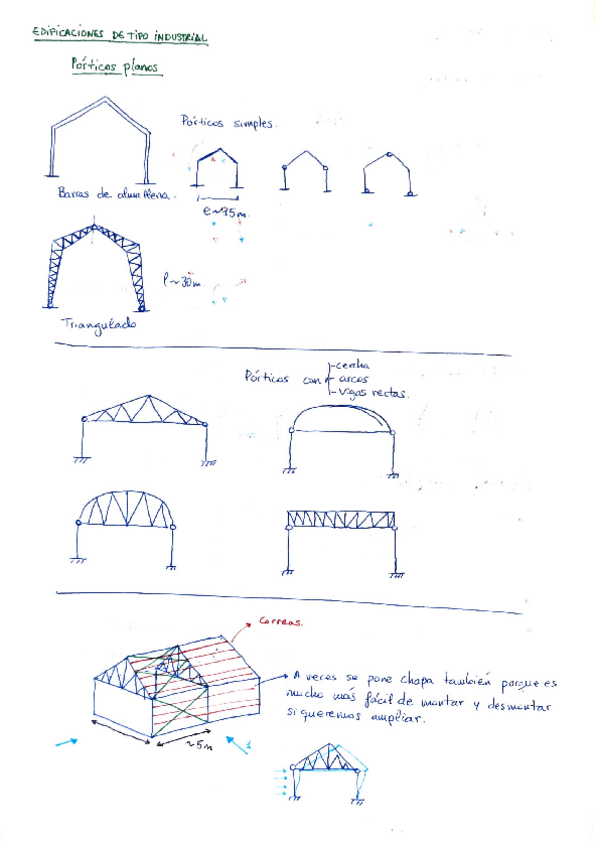 EDIFICACIONES DE TIPO INDUSTRIAL
Pórticos planos
Pórticos simples.
Barras de alma llena.
l~30m.
Triangulado
Pórticos con
-cercha
- arcos
- vigas rectas.
Correas.
A veces se pone chapa también porque es
mucho más fácil de montar y desmontar
si queremos ampliar.
~5m
1